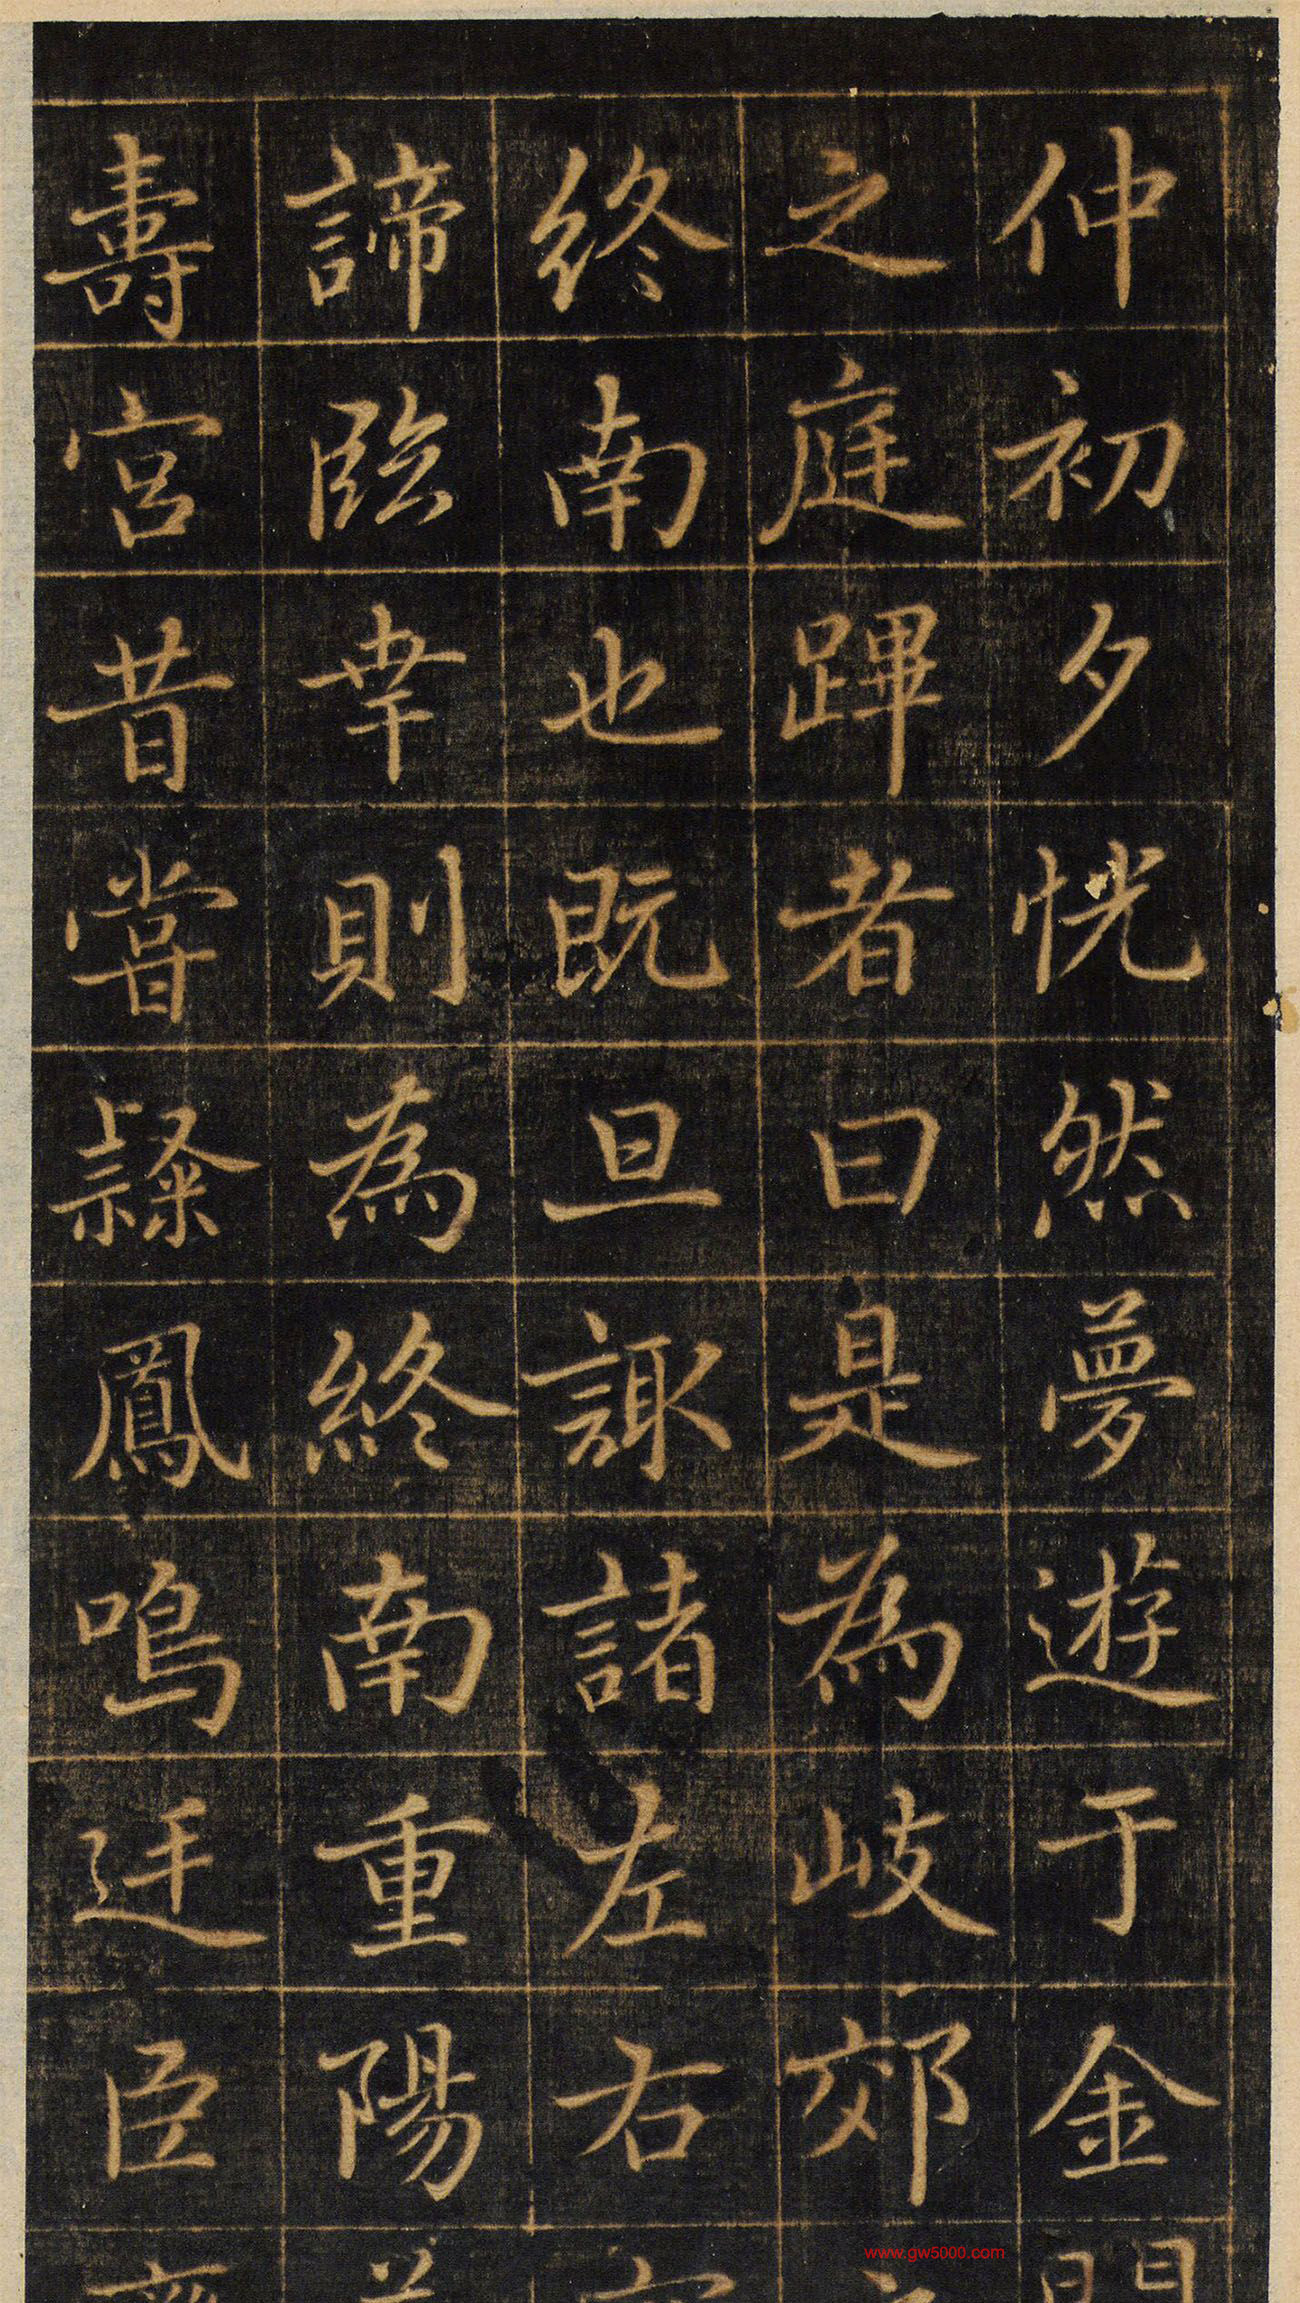 仲初夕恍然夢遊于金門
之庭蹕者曰是為岐郊之
終南也既旦諏諸左右
諦臨幸則為終南重陽萬
壽宮昔嘗隸鳳鳴迋臣
www.gw5000.com